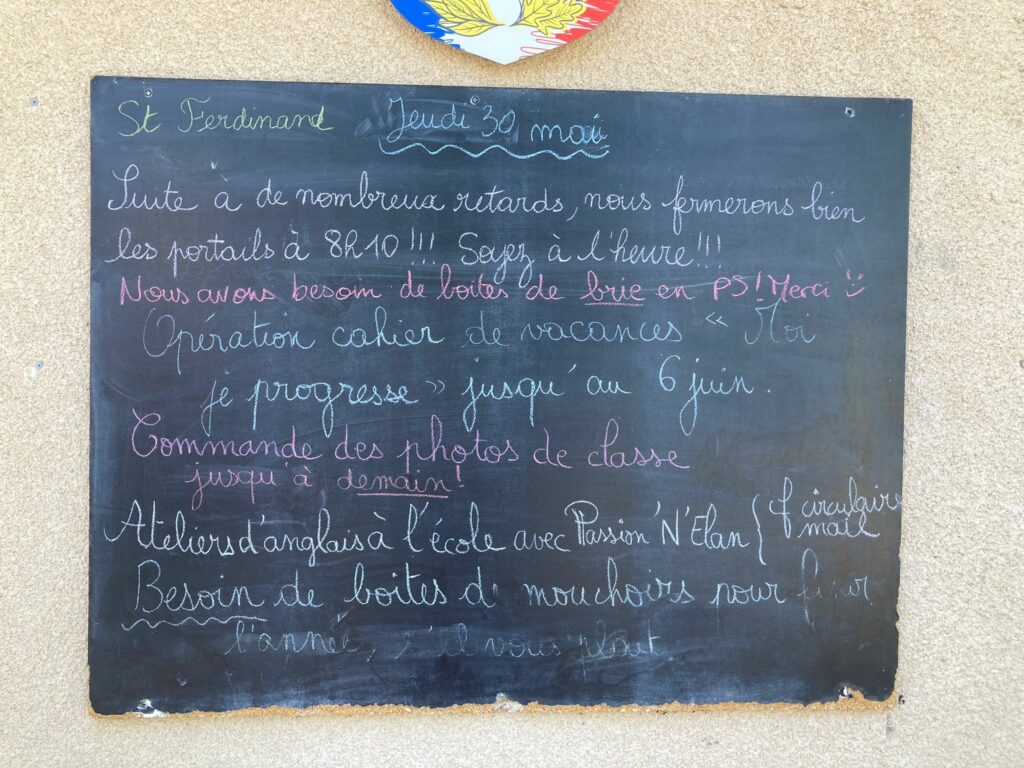 St Ferdinand Jeudi 30 mai
Suite à de nombreux retards, nous fermerons bien
les portails à 8h10 !!! Soyez à l'heure !!!
Nous avons besoin de boites de brie en PS ! Merci :)
Opération cahier de vacances « Moi
je progresse » jusqu'au 6 juin.
Commande des photos de classe
jusqu'à demain !
Ateliers d'anglais à l'école avec Passion'N'Elan { cf circulaire
mail
Besoin de boites de mouchoirs pour finir
l'année, s'il vous plait